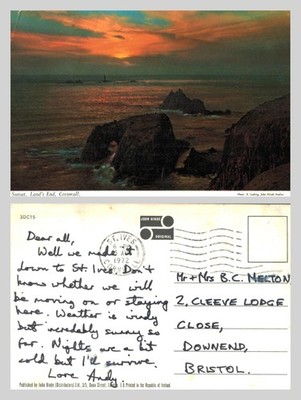 Sunset, Land's End, Cornwall.
3DC16
Dear all,
Well we made it
down to St. Ives. Don't
know whether we will
be moving on or staying
here. Weather is windy
but incredably sunny so
far. Nights are a bit
cold but I'll survive.
Love Andy.
ST. IVES
1972
JOHN HINDE
ORIGINAL
Mr + Mrs B.C. MELTON
2, CLEEVE LODGE
CLOSE,
DOWNEND,
BRISTOL.
Published by John Hinde (Distributors) Ltd.
Printed in the Republic of Ireland